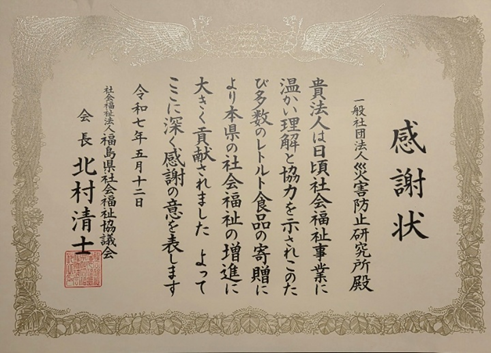 感謝状
一般社団法人災害防止研究所 殿
貴法人は日頃社会福祉事業に
温かい理解と協力を示されこのた
び多数のレトルト食品の寄贈に
より本県の社会福祉の増進に
大きく貢献されました よって
ここに深く感謝の意を表します
令和七年五月十二日
社会福祉法人 福島県社会福祉協議会
会長 北村清士